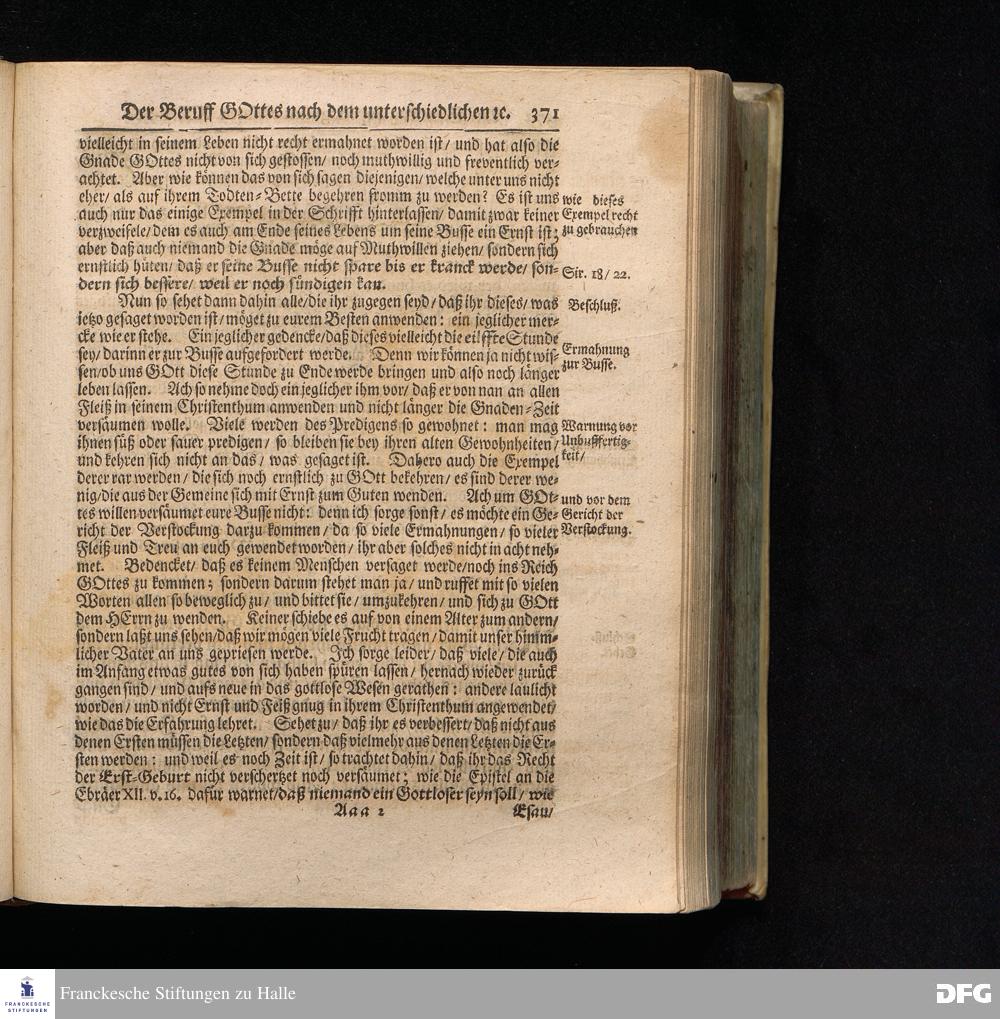 Der Beruff GOttes nach dem unterschiedlichen ꝛc. 371
vielleicht in seinem Leben nicht recht ermahnet worden ist/ und hat also die
Gnade GOttes nicht von sich gestossen/ noch muthwillig und freventlich ver-
achtet. Aber wie können das von sich sagen diejenigen/ welche unter uns nicht
eher/ als auf ihrem Todten-Bette begehren fromm zu werden? Es ist uns
auch nur das einige Exempel in der Schrifft hinterlassen/ damit zwar keiner
verzweifele/ dem es auch am Ende seines Lebens um seine Busse ein Ernst ist;
aber daß auch niemand die Gnade möge auf Muthwillen ziehen/ sondern sich
ernstlich hüten/ daß er seine Busse nicht spare bis er kranck werde/ son-
dern sich bessere/ weil er noch sündigen kan.
Nun so sehet dann dahin alle/ die ihr zugegen seyd/ daß ihr dieses/ was
jetzo gesaget worden ist/ möget zu eurem Besten anwenden: ein jeglicher mer-
cke wie er stehe. Ein jeglicher gedencke/ daß dieses vielleicht die eilffte Stunde
sey/ darinn er zur Busse aufgefordert werde. Denn wir können ja nicht wis-
sen/ ob uns GOtt diese Stunde zu Ende werde bringen und also noch länger
leben lassen. Ach so nehme doch ein jeglicher ihm vor/ daß er von nan an allen
Fleiß in seinem Christenthum anwenden und nicht länger die Gnaden-Zeit
versäumen wolle. Viele werden des Predigens so gewohnet: man mag
ihnen süß oder sauer predigen/ so bleiben sie bey ihren alten Gewohnheiten/
und kehren sich nicht an das/ was gesaget ist. Dahero auch die Exempel
derer rar werden/ die sich noch ernstlich zu GOtt bekehren/ es sind derer we-
nig/ die aus der Gemeine sich mit Ernst zum Guten wenden. Ach um GOt-
tes willen versäumet eure Busse nicht: denn ich sorge sonst/ es möchte ein Ge-
richt der Verstockung darzu kommen/ da so viele Ermahnungen/ so vieler
Fleiß und Treu an euch gewendet worden/ ihr aber solches nicht in acht neh-
met. Bedencket/ daß es keinem Menschen versaget werde/ noch ins Reich
GOttes zu kommen; sondern darum stehet man ja/ und ruffet mit so vielen
Worten allen so beweglich zu/ und bittet sie/ umzukehren/ und sich zu GOtt
dem HErrn zu wenden. Keiner schiebe es auf von einem Alter zum andern/
sondern laßt uns sehen/ daß wir mögen viele Frucht tragen/ damit unser himm-
licher Vater an uns gepriesen werde. Ich sorge leider/ daß viele/ die auch
im Anfang etwas gutes von sich haben spüren lassen/ hernach wieder zurück
gangen sind/ und aufs neue in das gottlose Wesen gerathen: andere laulicht
worden/ und nicht Ernst und Feiß gnug in ihrem Christenthum angewendet/
wie das die Erfahrung lehret. Sehet zu/ daß ihr es verbessert/ daß nicht aus
denen Ersten müssen die Letzten/ sondern daß vielmehr aus denen Letzten die Er-
sten werden: und weil es noch Zeit ist/ so trachtet dahin/ daß ihr das Recht
der Erst-Geburt nicht verschertzet noch versäumet; wie die Epistel an die
Ebräer XII. v. 16. dafür warnet/ daß niemand ein Gottloser seyn soll/ wie
Aaa 2 Esau/
wie dieses
Exempel recht
zu gebrauchen
Sir. 18/ 22.
Beschluß.
Ermahnung
zur Busse.
Warnung vor
Unbußfertig-
keit/
und vor dem
Gericht der
Verstockung.
FRANCKESCHE
STIFTUNGEN
Franckesche Stiftungen zu Halle
DFG